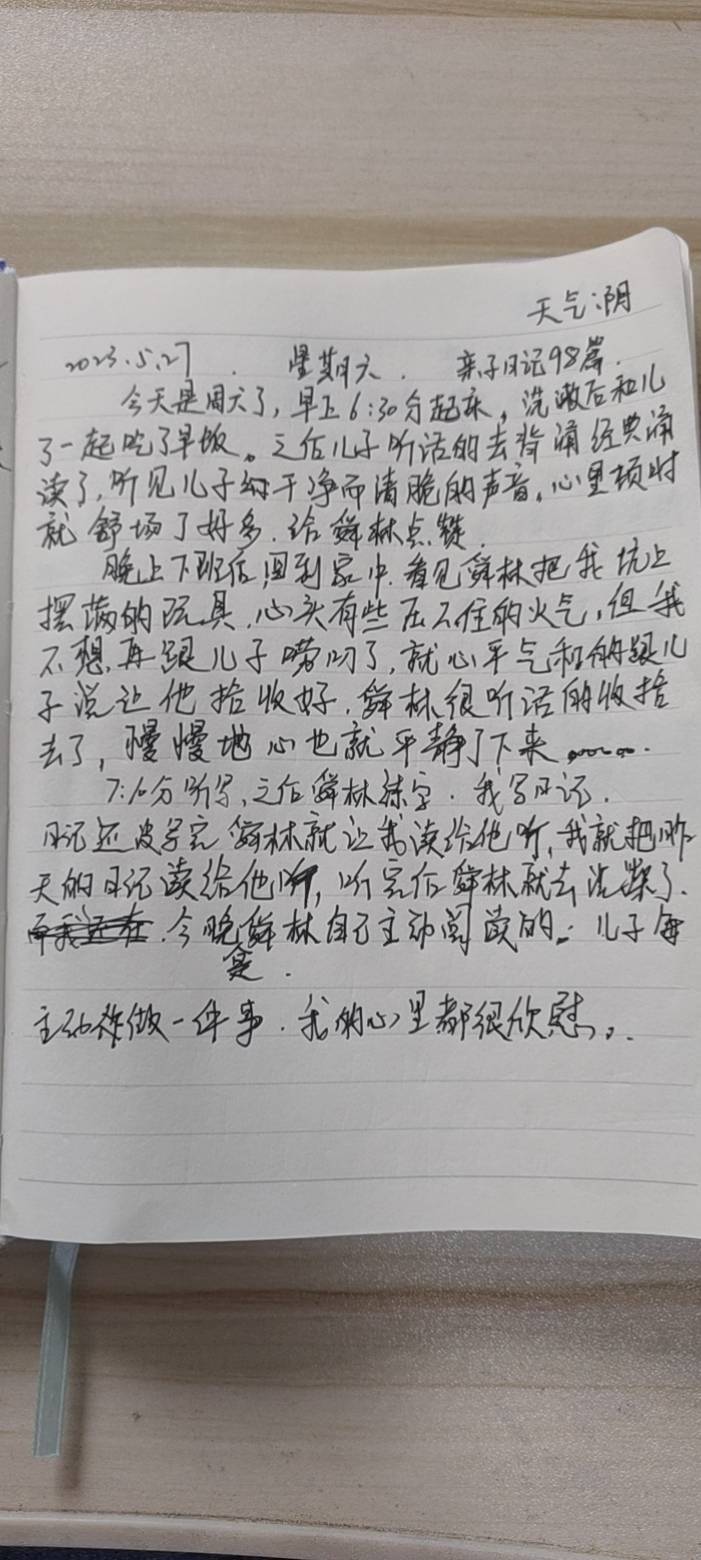 天气:阴
2023.5.27. 星期六. 亲子日记98篇.
今天是周六了,早上6:30分起床,洗漱后和儿
子一起吃了早饭。之后儿子听话的去背诵经典诵
读了,听见儿子干净而清脆的声音,心里顿时
就舒场了好多.给舜林点赞.
晚上下班后回到家中.看见舜林把我炕上
摆满的玩具,心头有些压不住的火气,但我
不想再跟儿子唠叨了,就心平气和的跟儿
子说让他拾收好.舜林很听话的收拾
去了,慢慢地心也就平静了下来……
7:10分听写,之后舜林练字.我写日记.
日记还没写完舜林就让我读给他听,我就把昨
天的日记读给他听,听完后舜林就去洗漱了.
今晚舜林自己主动阅读的.儿子每
主动做一件事.我的心里都很欣慰。